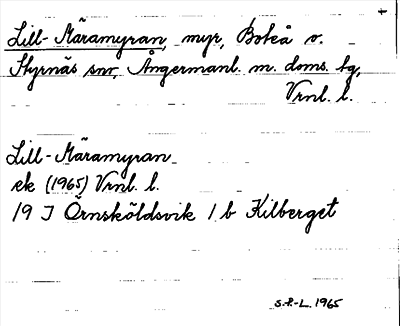 Lill-Märamyran, myr, Boteå o.
Styrnäs snr, Ångermanl. m. doms. bg,
Vrnl. l.
Lill-Märamyran
ek (1965) Vrnl. l.
19 J Örnsköldsvik 1 b Kilberget
S.P.-L. 1965